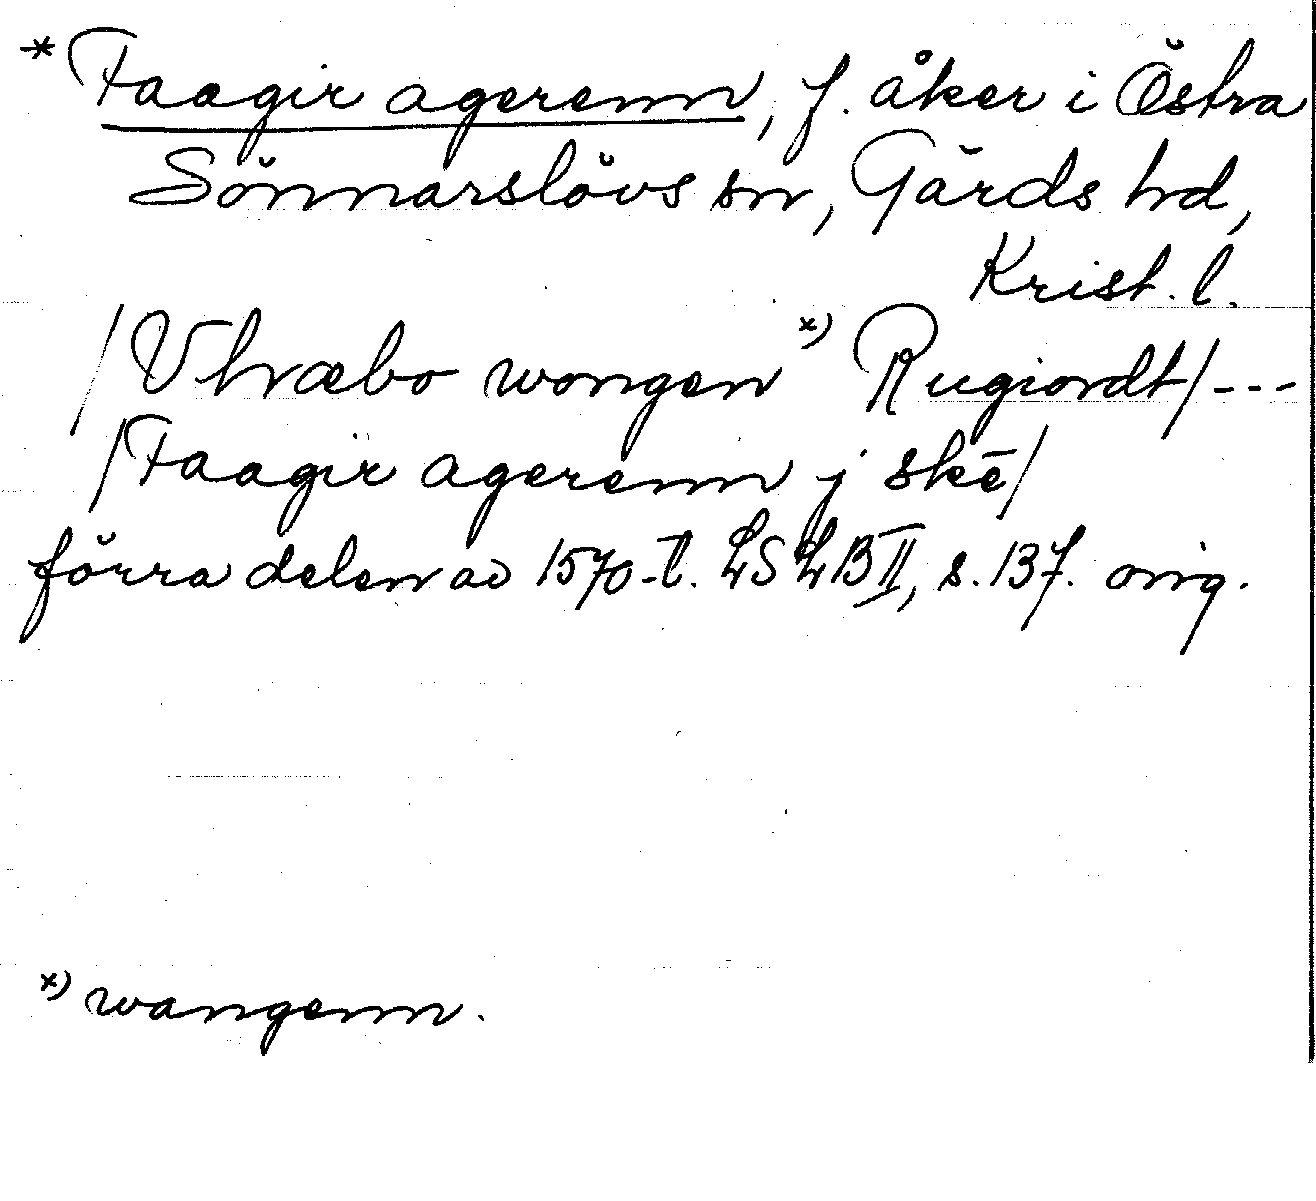 * Faagir agerenn, f. åker i Östra
Sönnarslövs sn, Gärds hd,
Krist. l.
/Vhræbo wongen *) Rugiordt/---
/Faagir agerenn j skē/
förra delen av 1570-t. LSLB II, s. 137. orig.
*) wangenn.